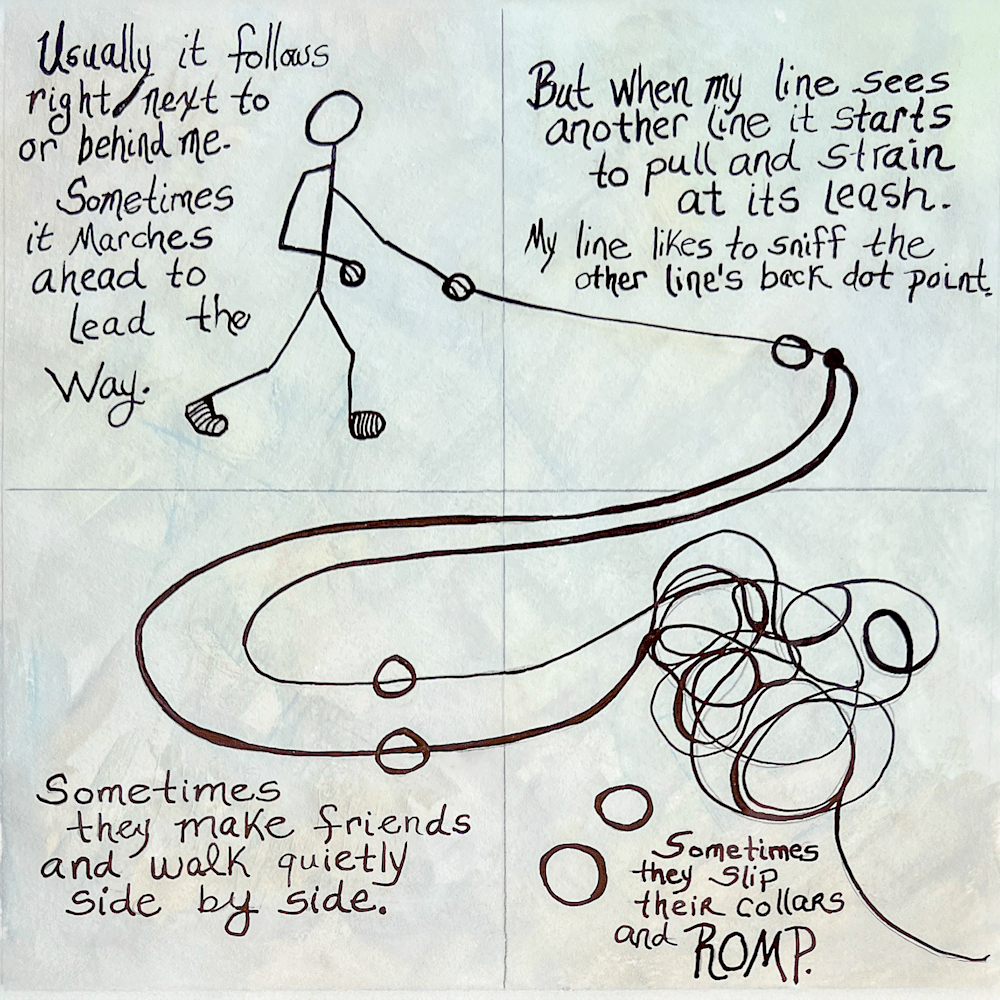 Usually it follows
right/next to
or behind me.
Sometimes
it Marches
ahead to
lead the
Way.
But when my line sees
another line it starts
to pull and strain
at its leash.
My line likes to sniff the
other line's back dot point.
Sometimes
they make friends
and walk quietly
side by side.
Sometimes
they slip
their collars
and ROMP.